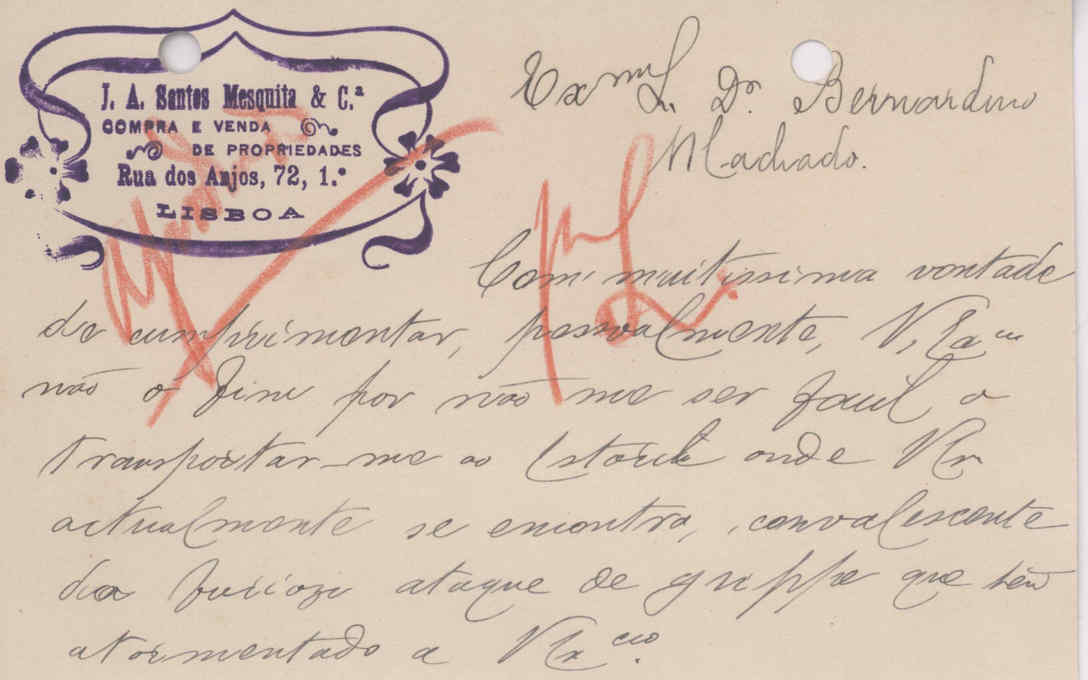 J. A. Santos Mesquita & C.ª
COMPRA E VENDA
DE PROPRIEDADES
Rua dos Anjos, 72, 1.º
LISBOA
Exmo Sr. Dr. Bernardino
Machado.
Com muitissima vontade
de cumprimentar, pessoalmente, V. Exa
não o fiz por não me ser facil o
transportar-me ao Estoril onde V. Ex
actualmente se encontra, convalescente
do ataque de grippe que tem
atormentado a V. Ex.cia